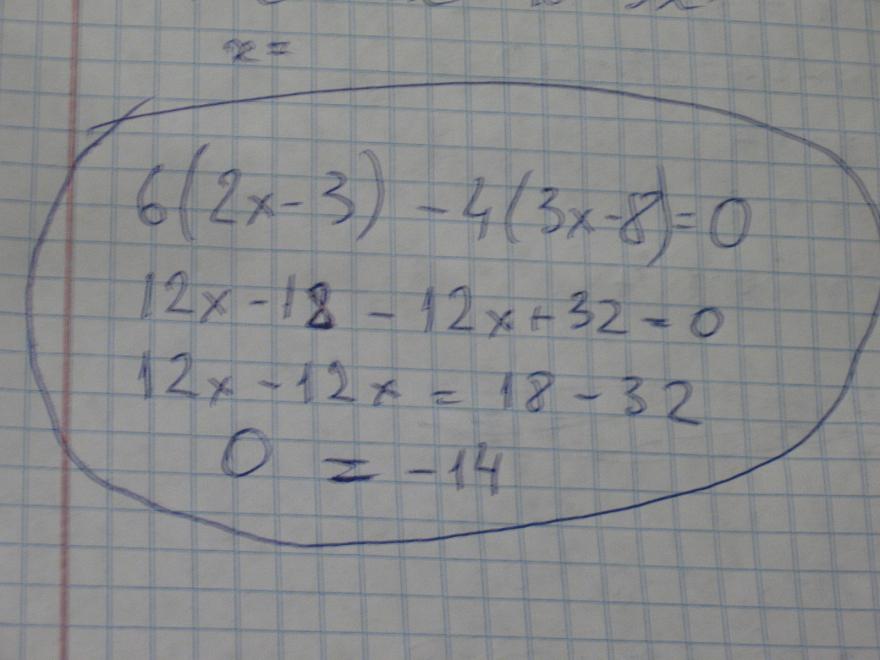 x=
6(2x-3) -4(3x-8)=0
12x-18 -12x+32=0
12x-12x = 18-32
0 = -14